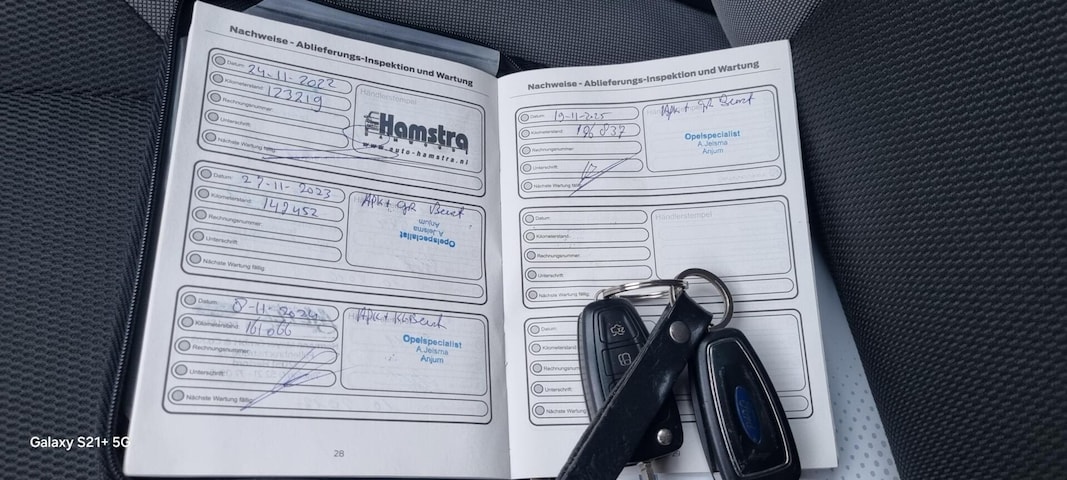 Nachweise - Ablieferungs-Inspektion und Wartung
Datum: 24-11-2022
Kilometerstand: 123219
Rechnungsnummer:
Unterschrift:
Nächste Wartung fällig
Händlerstempel
Hamstra
www.auto-hamstra.nl
Datum: 27-11-2023
Kilometerstand:
Rechnungsnummer:
Unterschrift:
Nächste Wartung fällig
Apk + gr Beurt
Opelspecialist
A.Jelsma
Anjum
Datum: 8-11-2024
Kilometerstand: 161066
Rechnungsnummer:
Unterschrift:
Nächste Wartung fällig
Apk + kl Beurt
Opelspecialist
A.Jelsma
Anjum
28
Nachweise - Ablieferungs-Inspektion und Wartung
Datum: 19-11-2025
Kilometerstand: 186837
Rechnungsnummer:
Unterschrift:
Nächste Wartung fällig
Apk + gr Beurt
Opelspecialist
A.Jelsma
Anjum
Datum:
Kilometerstand:
Rechnungsnummer:
Unterschrift:
Nächste Wartung fällig
Händlerstempel
Datum:
Kilometerstand
Rechnungsnum
Unterschrift:
Nächste Wartung
Ford
Galaxy S21+ 5G